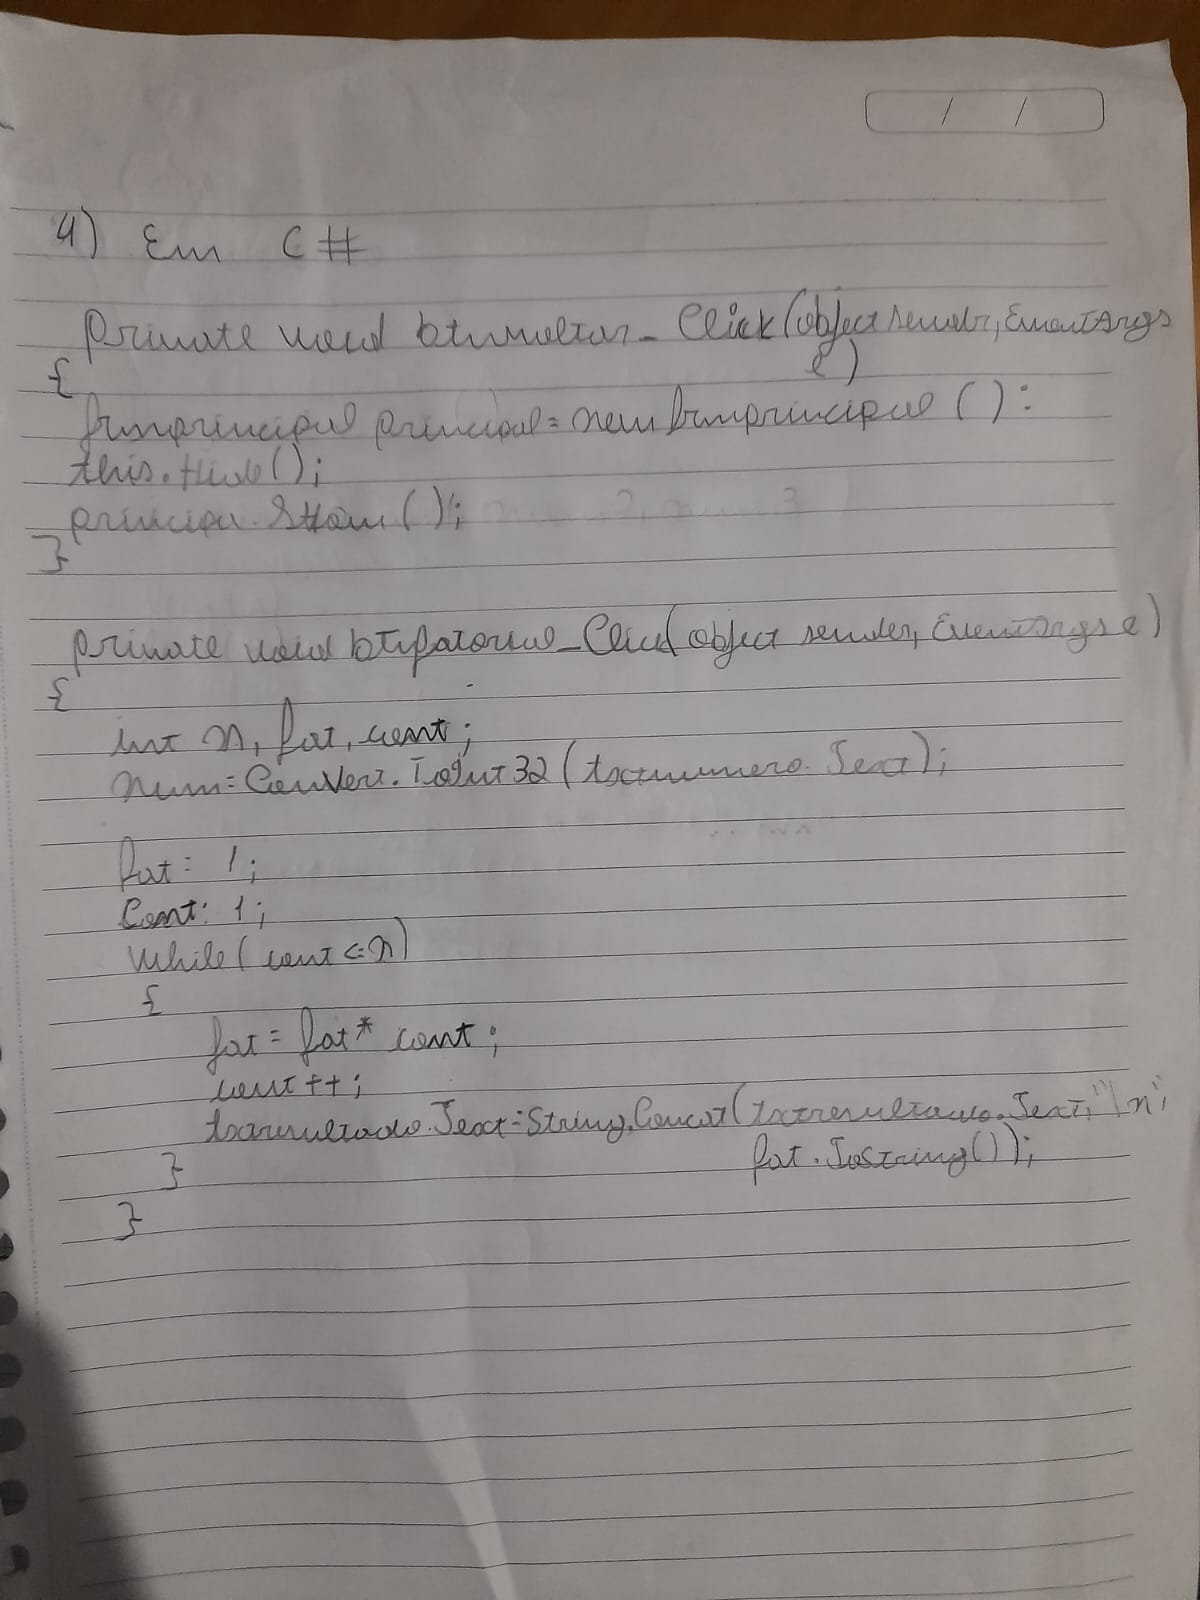 4) Em C#
private void btnvoltar_Click(object sender, EventArgs
e)
{
frmprincipal principal = new frmprincipal ():
this.Hide();
principa.SHow();
}
private void btnfatorial_Click(object sender, EventArgs e)
{
int n, fat, cont;
num = Convert.ToInt32 (txtnumero.Text);
fat = 1;
Cont: 1;
While( cont <= n)
{
fat = fat * cont;
cont ++;
txtresultado.Text = String.Concat(txtresultado.Text, "\n",
fat.ToString());
}
}